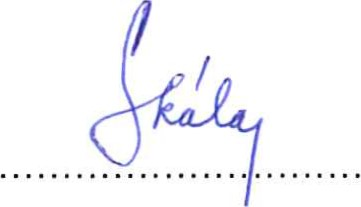 Skála